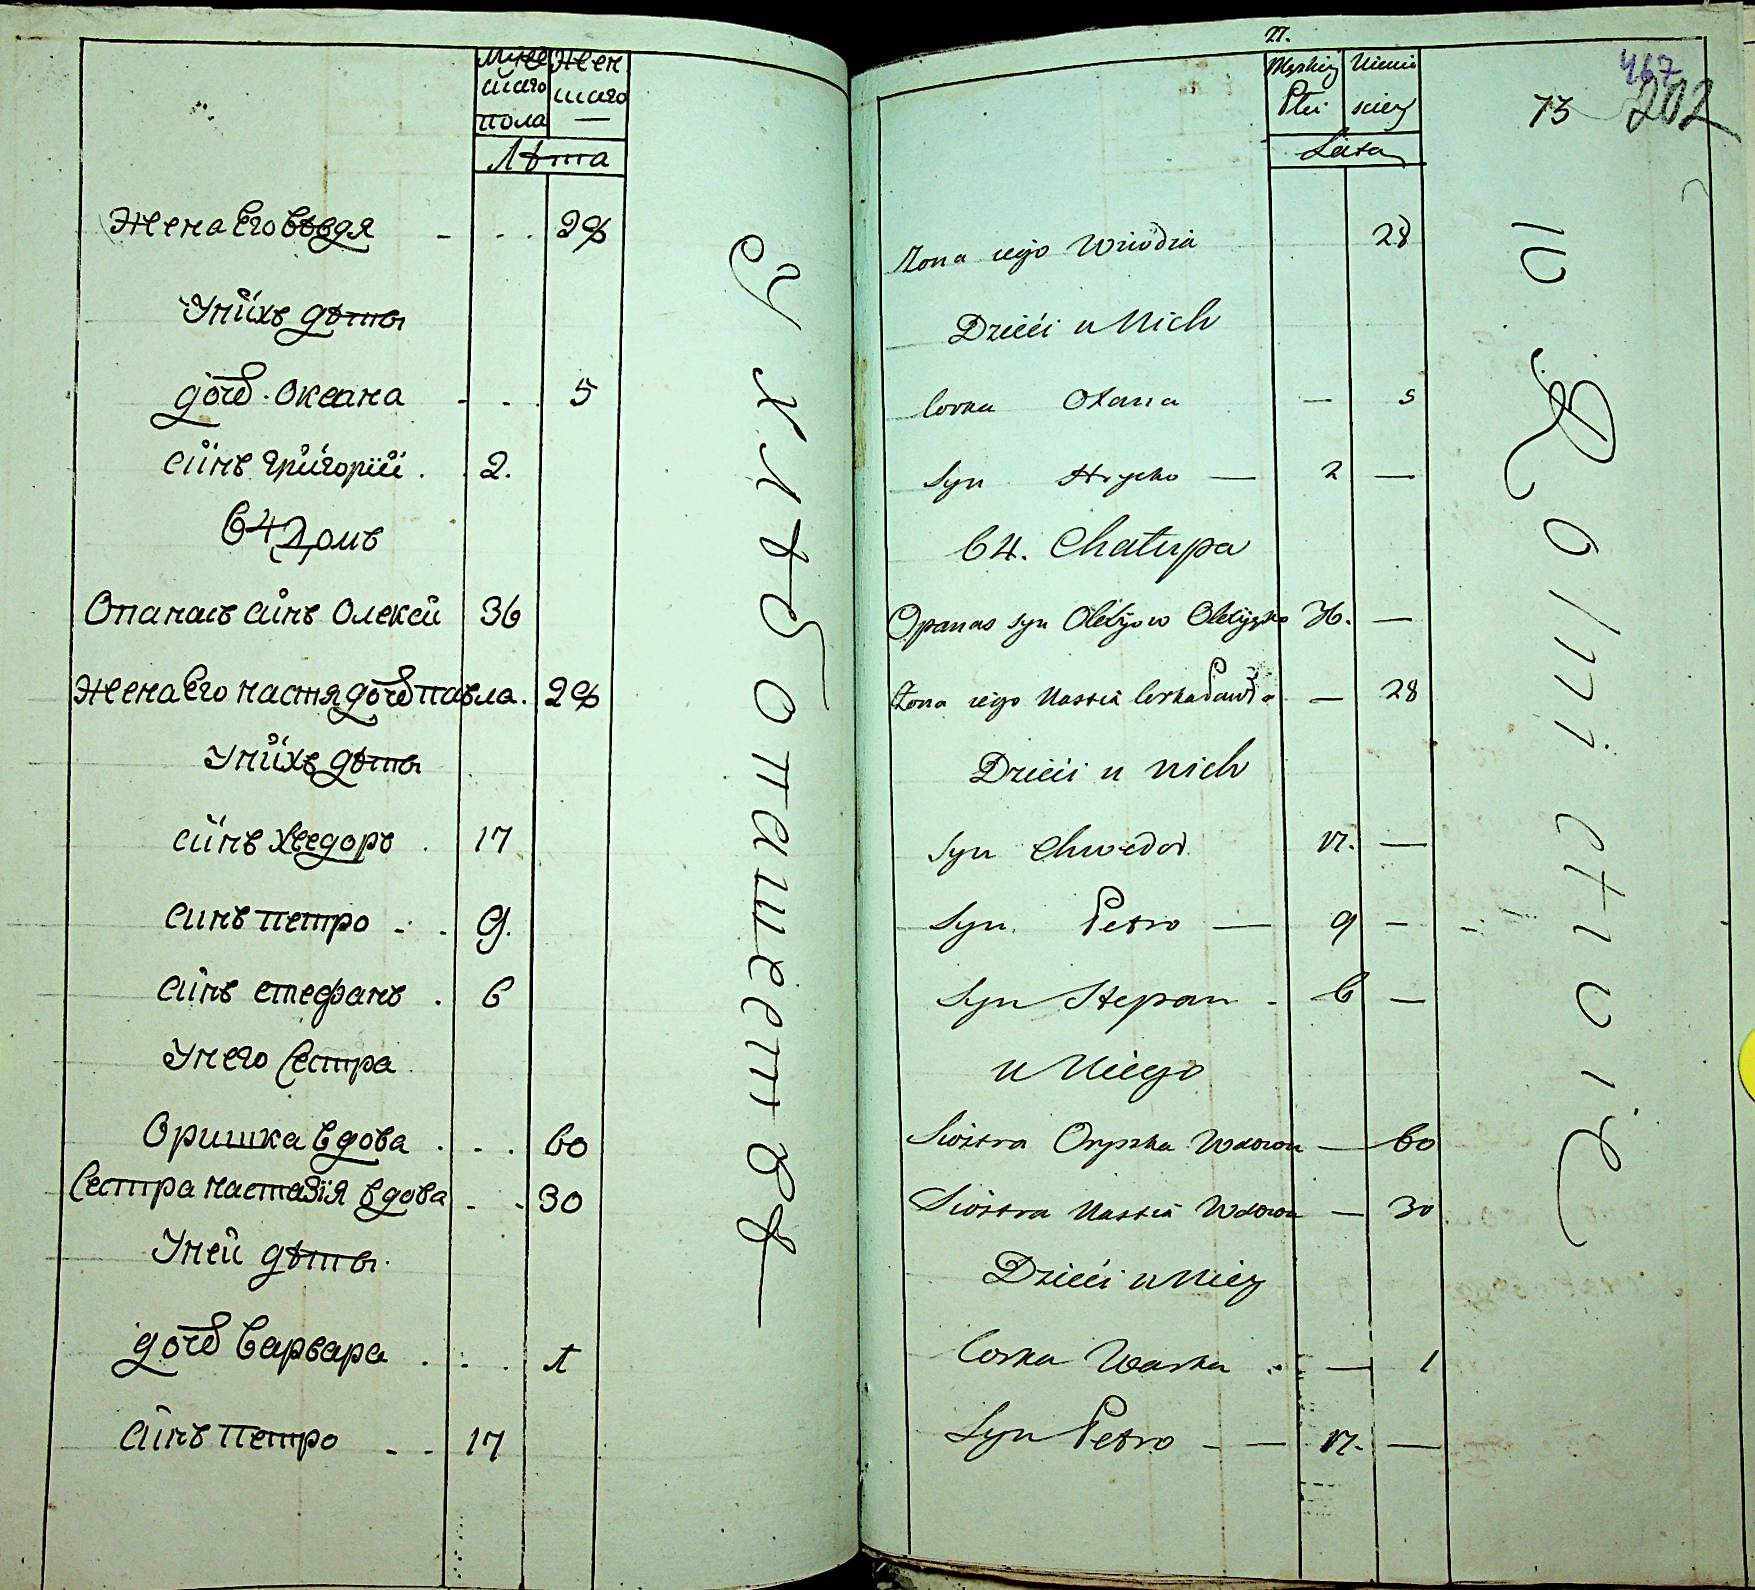 Мужескаго пола
Женскаго —
Лѣта
Жена Его Въвдя - - . . 28
У нихъ дѣти
дочь Оксана - - . 5
синъ григорий . . 2.
64 Домъ
Опанасъ синъ Олексей 36
Жена Его настя дочь павла. 28
У нихъ дѣти
синъ Хведоръ . 17
синъ петро - - 9.
синъ стефанъ . 6
У него Сестра
Оришка вдова . . . 60
Сестра настазія вдова - - 30
У ней дѣти
дочь Варвара . . . 1
синъ петро - - 17
У хлѣбопашествѣ
77.
Męskiey Płci
Niewiesciey
Lata
73
467
202
Żona iego Wiivdzia 28
Dzieci u Nich
Corka Oxana — 5
Syn Hrycko — 2 —
64. Chałupa
Opanas syn Olexyiow Olexijenko 36. —
Żona iego Nastia Corka Pawła — 28
Dzieci u nich
Syn Chwedor 17. —
Syn Petro — 9 —
Syn Stepan - 6 —
u Niego
Siostra Oryszka Wdowa — 60
Siostra Nastia Wdowa — 30
Dzieci u Niey
Corka Warka . — 1
Syn Petro - — 17. —
w Rolnictwie